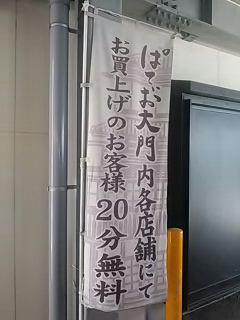 ぱてぃお大門内各店舗にて
お買上げのお客様20分無料